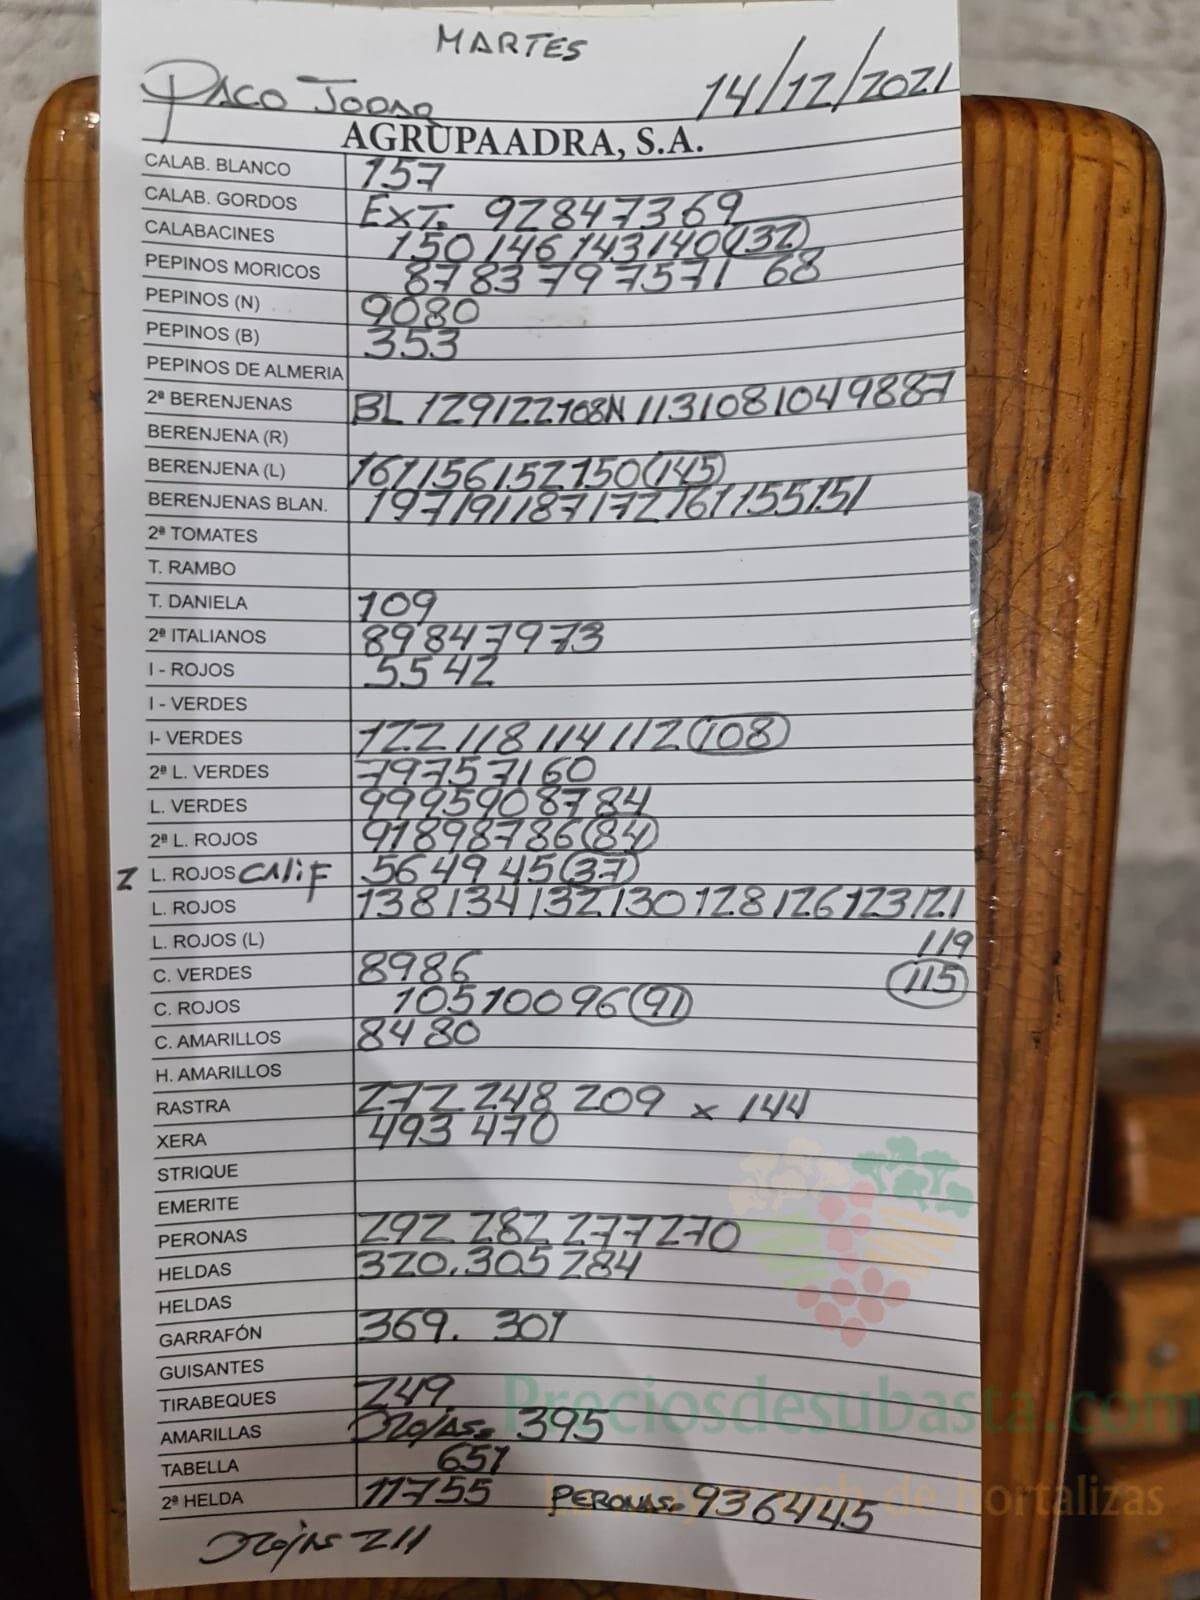 MARTES
PACO JODAR 14/12/2021
AGRUPAADRA, S.A.
CALAB. BLANCO 157
CALAB. GORDOS EXT. 92 84 73 69
CALABACINES 150 146 143 140 (132)
PEPINOS MORICOS 87 83 79 75 71 68
PEPINOS (N) 90 80
PEPINOS (B) 353
PEPINOS DE ALMERIA
2ª BERENJENAS BL 129 122 108 N 113 108 104 98 87
BERENJENA (R)
BERENJENA (L) 161 156 152 150 (145)
BERENJENAS BLAN. 197 191 187 172 161 155 151
2ª TOMATES
T. RAMBO
T. DANIELA 109
2ª ITALIANOS 89 84 79 73
I - ROJOS 55 42
I - VERDES
I- VERDES 122 118 114 112 (108)
2ª L. VERDES 79 75 71 60
L. VERDES 99 95 90 87 84
2ª L. ROJOS 91 89 87 86 (84)
2 L. ROJOS CALIF 56 49 45 (37)
L. ROJOS 138 134 132 130 128 126 123 121
L. ROJOS (L) 119
C. VERDES 89 86 (115)
C. ROJOS 105 100 96 (91)
C. AMARILLOS 84 80
H. AMARILLOS
RASTRA 272 248 209 x 144
XERA 493 470
STRIQUE
EMERITE
PERONAS 292 282 277 270
HELDAS 320. 305 284
HELDAS
GARRAFÓN 369. 301
GUISANTES
TIRABEQUES 249
AMARILLAS ROJAS= 395
TABELLA 651
2ª HELDA 117 55 PERONAS= 93 64 45
ROJAS 211
Preciosdesubasta.com
de hortalizas